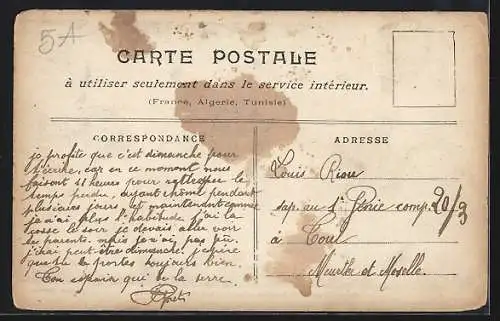 5A
CARTE POSTALE
à utiliser seulement dans le service intérieur.
(France, Algerie, Tunisie)
CORRESPONDANCE
ADRESSE
je profite que c'est dimanche pour
t'ecrire, car en ce moment nous
faisont 11 heures pour rattraper le
temps perdu. ayant chomé pendant
plusieurs jours et maintenant comme
je n'ai plus l'habitude, j'ai la
le soir je devais aller voir
les parents. mais je n'ai pas pu.
j'irai peut être dimanche. j'espère
que tu te portes toujours bien.
Ton copain qui te la serre.
Louis Riou
sap. au 1° Génie comp. 20/3
à Toul
Meurthe et Moselle.